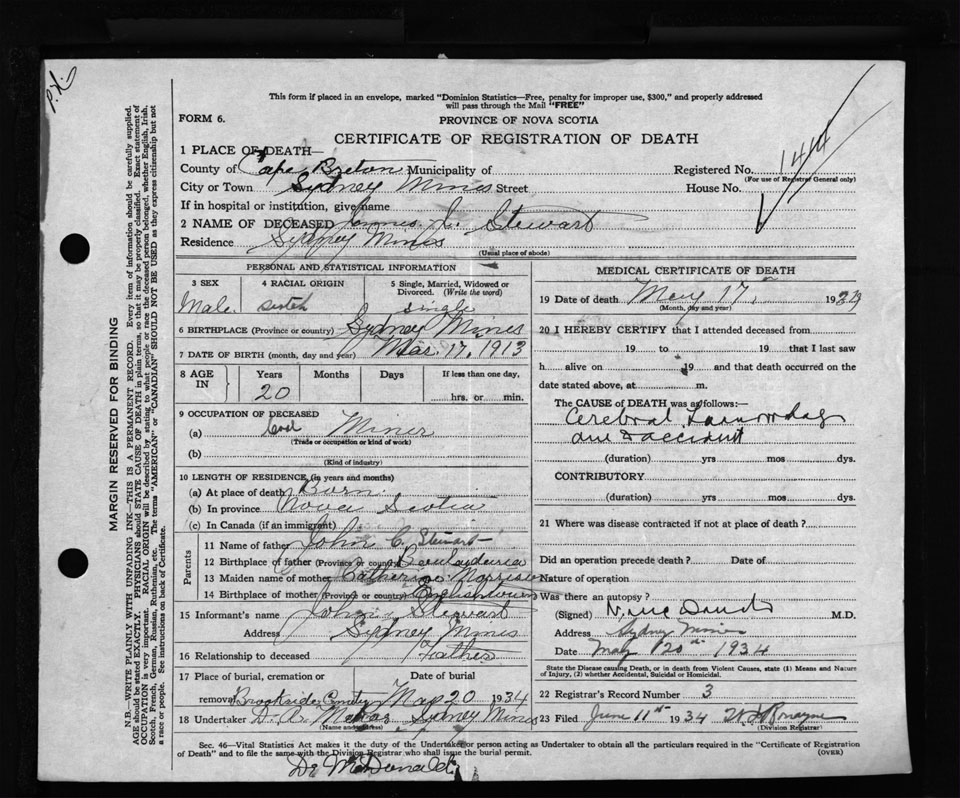 P.H.
This form if placed in an envelope, marked "Dominion Statistics—Free, penalty for improper use, $300," and properly addressed
will pass through the Mail "FREE"
FORM 6.
PROVINCE OF NOVA SCOTIA
CERTIFICATE OF REGISTRATION OF DEATH
1 PLACE OF DEATH—
County of Cape Breton Municipality of
Registered No.
(For use of Registrar General only)
City or Town Sydney Mines Street
House No.
If in hospital or institution, give name
2 NAME OF DECEASED James Stewart
Residence Sydney Mines
(Usual place of abode)
PERSONAL AND STATISTICAL INFORMATION
3 SEX
Male
4 RACIAL ORIGIN
5 Single, Married, Widowed or
Divorced. (Write the word)
single
6 BIRTHPLACE (Province or country) Sydney Mines
7 DATE OF BIRTH (month, day and year) Mar. 17, 1913
8 AGE IN
Years
20
Months
Days
If less than one day,
hrs. or min.
9 OCCUPATION OF DECEASED
(a) Coal Miner
(Trade or occupation or kind of work)
(b)
(Kind of industry)
10 LENGTH OF RESIDENCE (in years and months)
(a) At place of death Born
(b) In province Nova Scotia
(c) In Canada (if an immigrant)
Parents
11 Name of father John C. Stewart
12 Birthplace of father (Province or country)
13 Maiden name of mother Catherine Morrison
14 Birthplace of mother (Province or country) Englishtown
15 Informant's name John Stewart
Address Sydney Mines
16 Relationship to deceased Father
17 Place of burial, cremation or
removal Brookside Cemetery
Date of burial
May 20 1934
18 Undertaker D. A. Sydney Mines
(Name and address)
MEDICAL CERTIFICATE OF DEATH
19 Date of death May 17,
(Month, day and year)
20 I HEREBY CERTIFY that I attended deceased from
19 to 19 that I last saw
h alive on 19 and that death occurred on the
date stated above, at m.
The CAUSE of DEATH was as follows:—
Cerebral
due to accident
(duration) yrs mos dys.
CONTRIBUTORY
(duration) yrs mos dys.
21 Where was disease contracted if not at place of death?
Did an operation precede death? Date of
Nature of operation
Was there an autopsy?
(Signed) M.D.
Address Sydney Mines
Date May 20th 1934
State the Disease causing Death, or in death from Violent Causes, state (1) Means and Nature
of Injury, (2) whether Accidental, Suicidal or Homicidal.
22 Registrar's Record Number 3
23 Filed June 11th 1934
(Division Registrar)
Sec. 46—Vital Statistics Act makes it the duty of the Undertaker or person acting as Undertaker to obtain all the particulars required in the "Certificate of Registration
of Death" and to file the same with the Division Registrar who shall issue the burial permit.
(OVER)
Dr McDonald
MARGIN RESERVED FOR BINDING
N.B.—WRITE PLAINLY WITH UNFADING INK—THIS IS A PERMANENT RECORD. Every item of information should be carefully supplied.
AGE should be stated EXACTLY. PHYSICIANS should STATE CAUSE OF DEATH in plain terms, so that it may be properly classified. Exact statement of
OCCUPATION is very important. RACIAL ORIGIN will be described by stating to what people or race the deceased person belonged, whether English, Irish,
Scotch, French, German, Russian, Ruthenian, etc. The terms "AMERICAN" or "CANADIAN" SHOULD NOT BE USED as they express citizenship but not
a race or people. See instructions on back of Certificate.